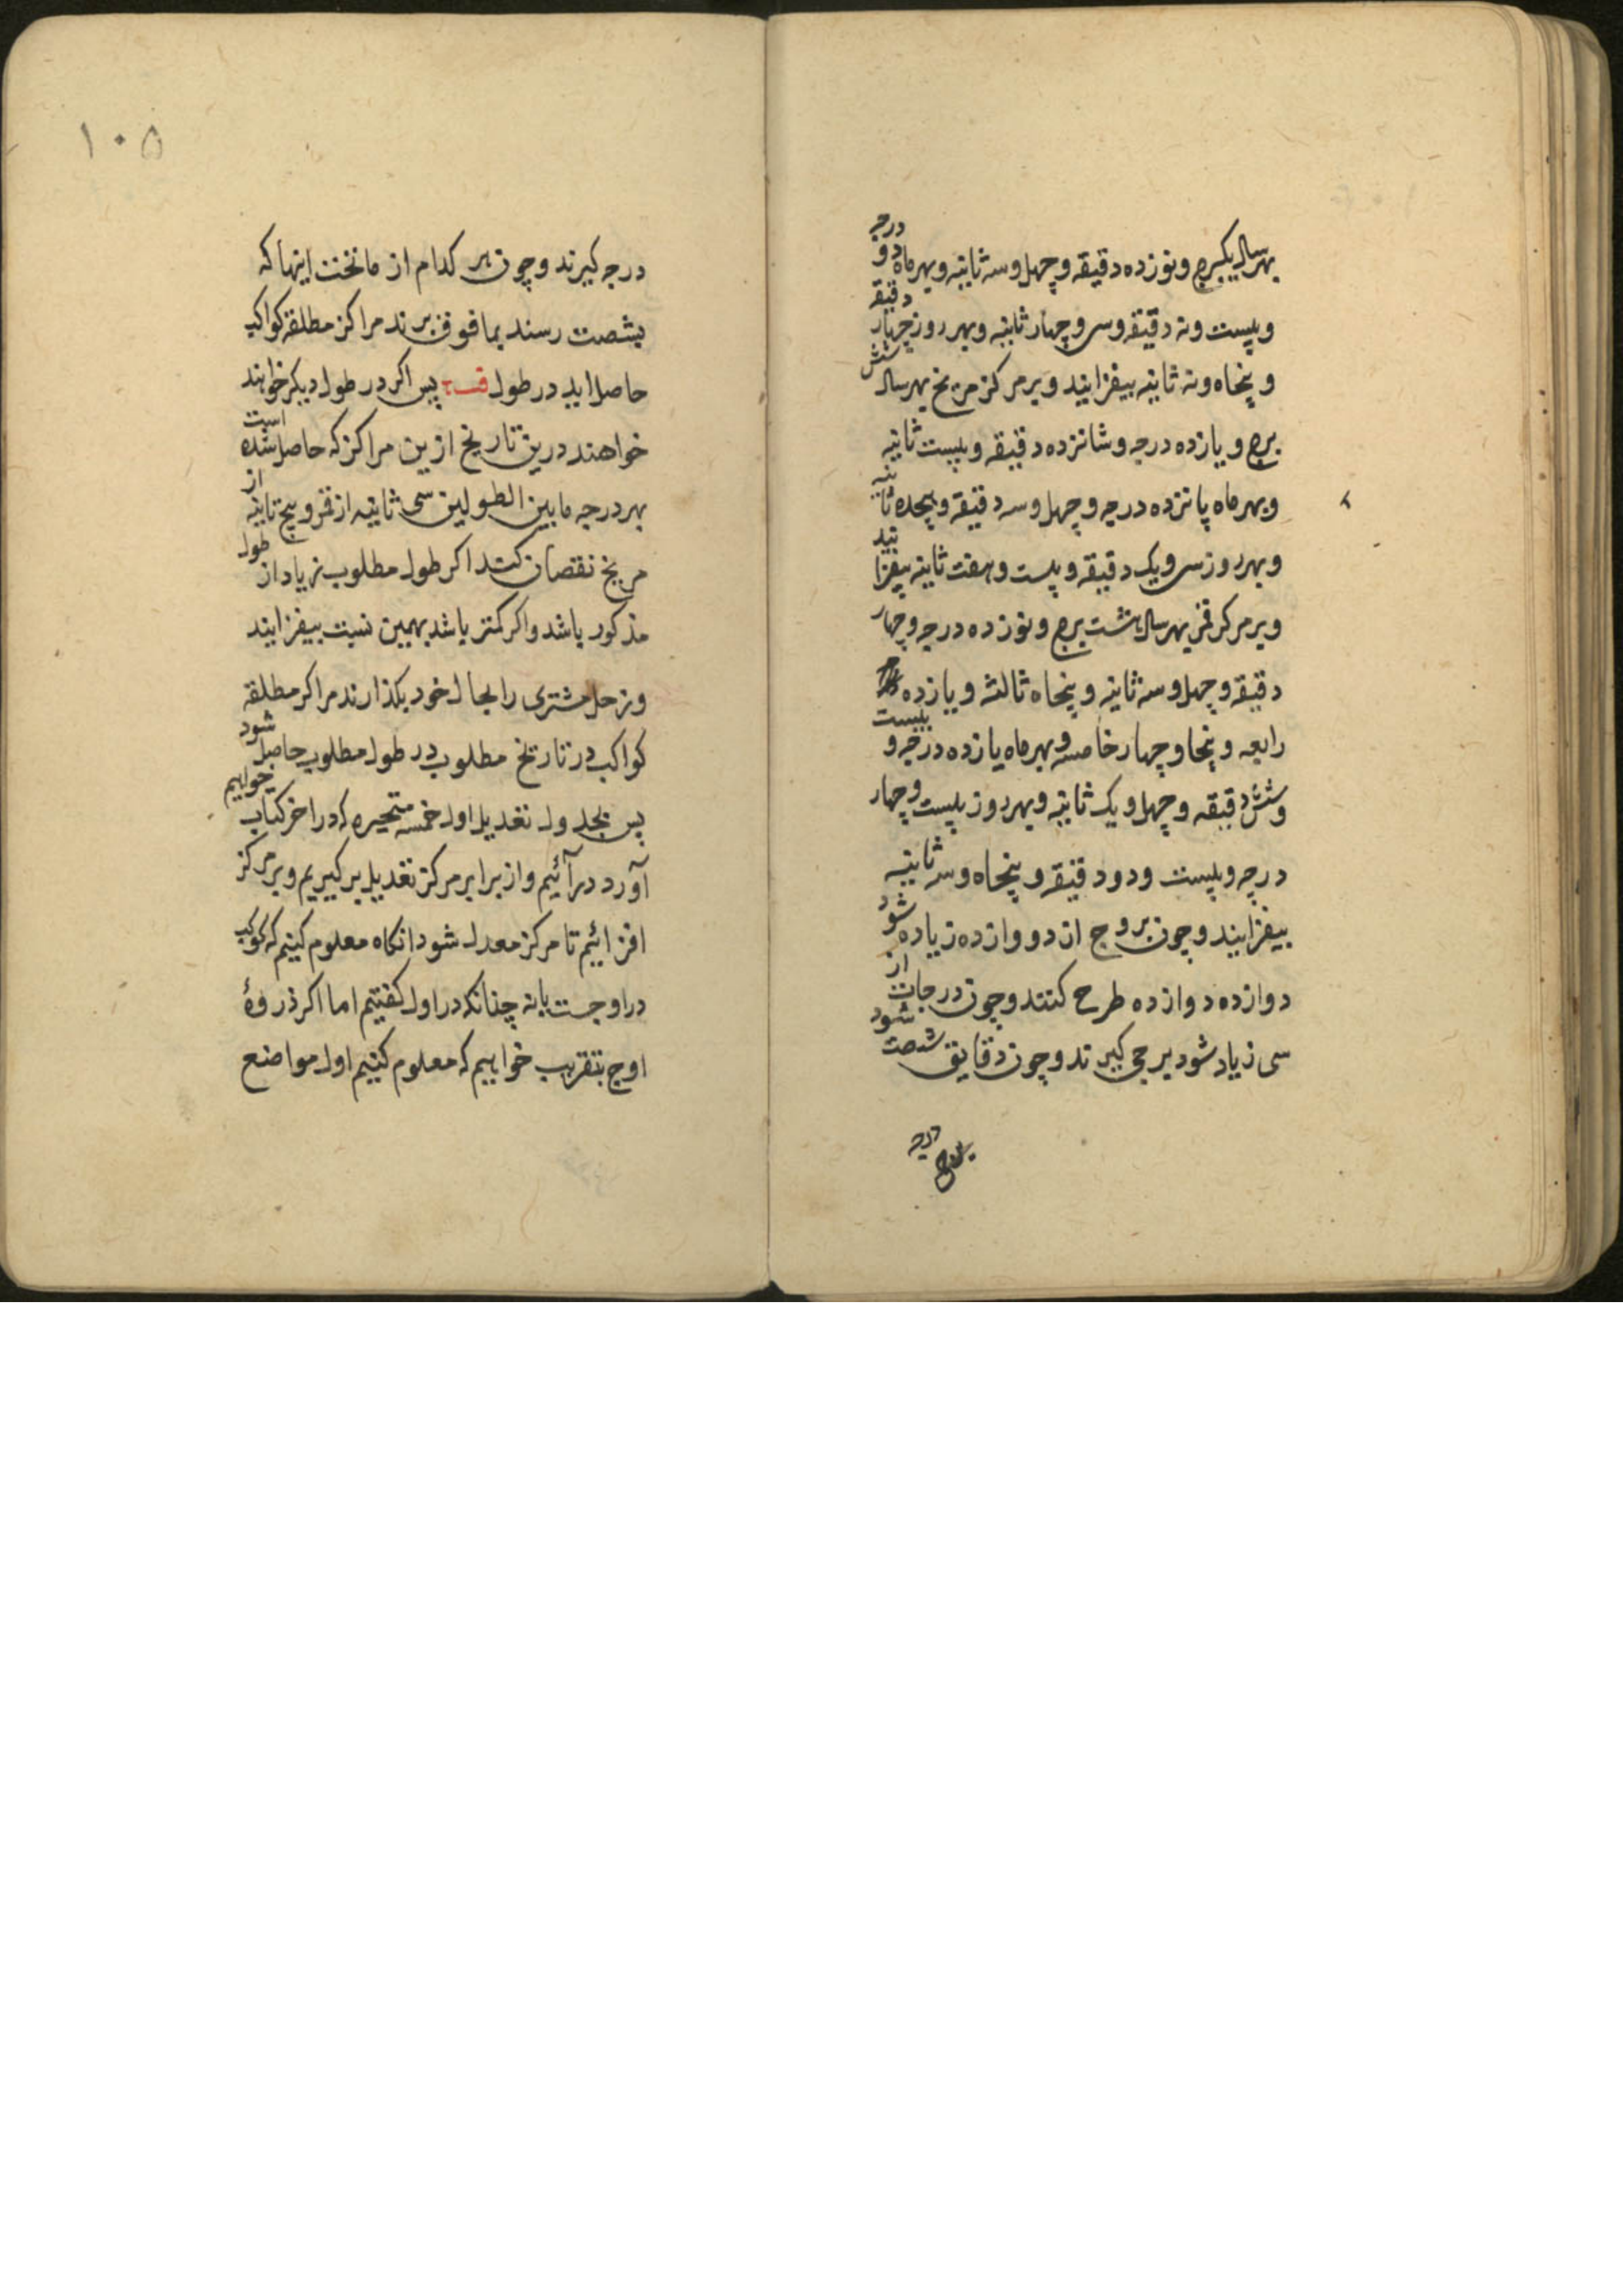 بهر سال یکبرج و نوزده دقیقه و چهل و سه ثانیه و بهر ماه دو درجه
و بیست و نه دقیقه و سی و چهار ثانیه و بهر روز چهار دقیقه
و پنجاه و نه ثانیه بیفزایند و بر مرکز مریخ بهر سال شش
برج و یازده درجه و شانزده دقیقه و بیست ثانیه
و بهر ماه پانزده درجه و چهل و سه دقیقه و هجده ثانیه
و بهر روز سی و یک دقیقه و بیست و هفت ثانیه بیفزایند
و بر مرکز قمر بهر سال هشت برج و نوزده درجه و چهار
دقیقه و چهل و سه ثانیه و پنجاه ثالثه و یازده
رابعه و پنجا و چهار خامسه و بهر ماه یازده درجه و بیست
و شش دقیقه و چهل و یک ثانیه و بهر روز بیست و چهار
درجه و بیست و دو دقیقه و پنجاه و سه ثانیه
بیفزایند و چون بروج از دوازده زیاده شود
دوازده دوازده طرح کنند و چون درجات از
سی زیاد شود برجی کیرند و چون دقایق شصت شود
درجه
درجه کیرند و چون هر کدام از ماتحت اینها که
بشصت رسند بمافوق برند مراکز مطلقه کواکب
حاصل اید در طول پس اکر در طول دیکر خواهند
خواهند درین تاریخ ازین مراکز که حاصل شده است
بهر درجه مابین الطولین سی ثانیه از قمر و پنج ثانیه از
مریخ نقصان کنند اکر طول مطلوب زیاد از طول
مذکور باشد و اکر کمتر باشد بهمین نسبت بیفزایند
و زحل مشتری را بحال خود بکذارند مراکز مطلقه
کواکب در تاریخ مطلوب در طول مطلوب حاصل شود
پس بجدول تعدیل اول خمسه متحیره که در اخر کتاب خواهیم
آورد درآئیم و از برابر مرکز تعدیل بر کیریم و بر مرکز
افزائیم تا مرکز معدل شود انکاه معلوم کنیم که کوکب
در اوجست یا نه چنانکه در اول کفتیم اما اکر ذروهٔ
اوج بتقریب خواهیم که معلوم کنیم اول مواضع
۱۰۵